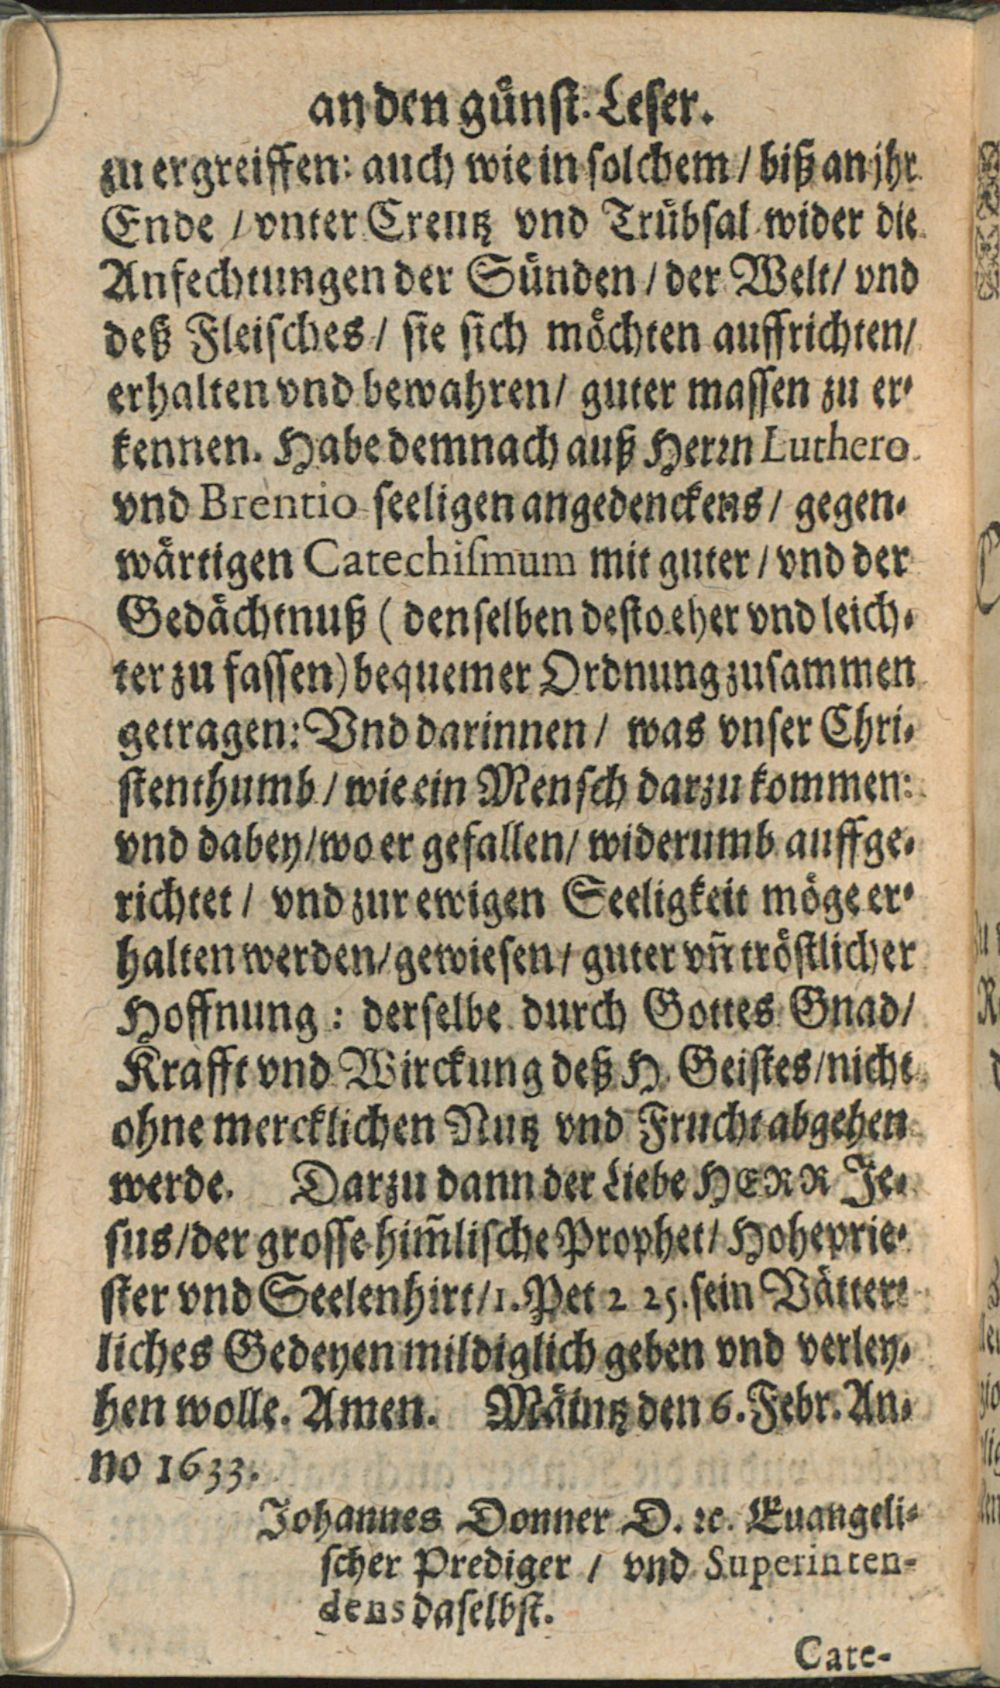 an den günſt. Leſer.
zu ergreiffen: auch wie in ſolchem / biß an jhr
Ende / vnter Creutz vnd Trübſal wider die
Anfechtungen der Sünden / der Welt / vnd
deß Fleiſches / ſie ſich möchten auffrichten /
erhalten vnd bewahren / guter maſſen zu er-
kennen. Habe demnach auß Herrn Luthero
vnd Brentio ſeeligen angedenckens / gegen-
wärtigen Catechiſmum mit guter / vnd der
Gedächtnuß (denſelben deſto eher vnd leich-
ter zu faſſen) bequemer Ordnung zuſammen
getragen: Vnd darinnen / was vnſer Chri-
ſtenthumb / wie ein Menſch darzu kommen:
vnd dabey / wo er gefallen / widerumb auffge-
richtet / vnd zur ewigen Seeligkeit möge er-
halten werden / gewieſen / guter vñ tröſtlicher
Hoffnung: derſelbe durch Gottes Gnad /
Krafft vnd Wirckung deß H. Geiſtes / nicht
ohne mercklichen Nutz vnd Frucht abgehen
werde. Darzu dann der Liebe HERR Je-
ſus / der groſſe him̃liſche Prophet / Hoheprie-
ſter vnd Seelenhirt / 1. Pet 2 25. ſein Vätter-
liches Gedeyen mildiglich geben vnd verley-
hen wolle. Amen. Mäintz den 6. Febr. An-
no 1633.
Johannes Donner D. ꝛc. Euangeli-
ſcher Prediger / vnd Superinten-
dens daſelbſt.
Cate-